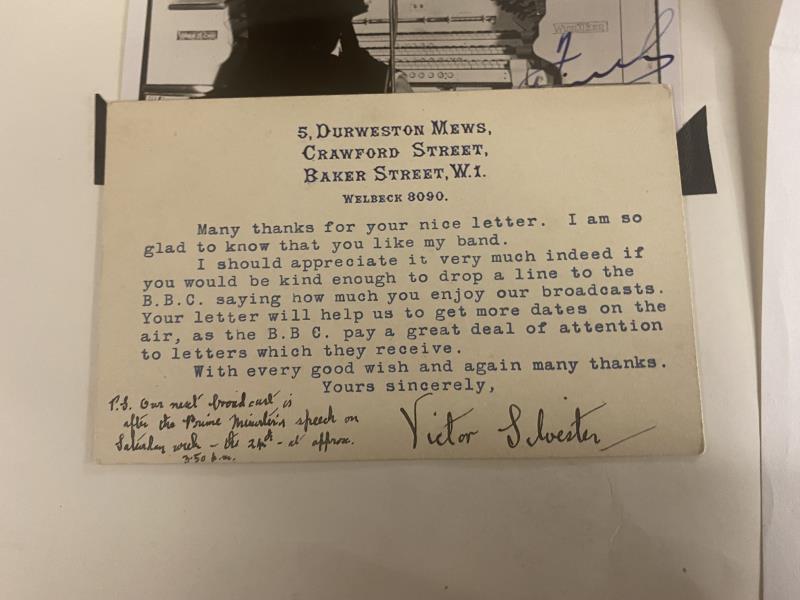 WURLITZER
5, DURWESTON MEWS,
CRAWFORD STREET,
BAKER STREET, W.1.
WELBECK 8090.
Many thanks for your nice letter. I am so
glad to know that you like my band.
I should appreciate it very much indeed if
you would be kind enough to drop a line to the
B.B.C. saying how much you enjoy our broadcasts.
Your letter will help us to get more dates on the
air, as the B.B C. pay a great deal of attention
to letters which they receive.
With every good wish and again many thanks.
Yours sincerely,
Victor Silvester
P.S. Our next broadcast is
after the Prime Minister's speech on
Saturday week - the 24th - at approx.
3.50 p.m.